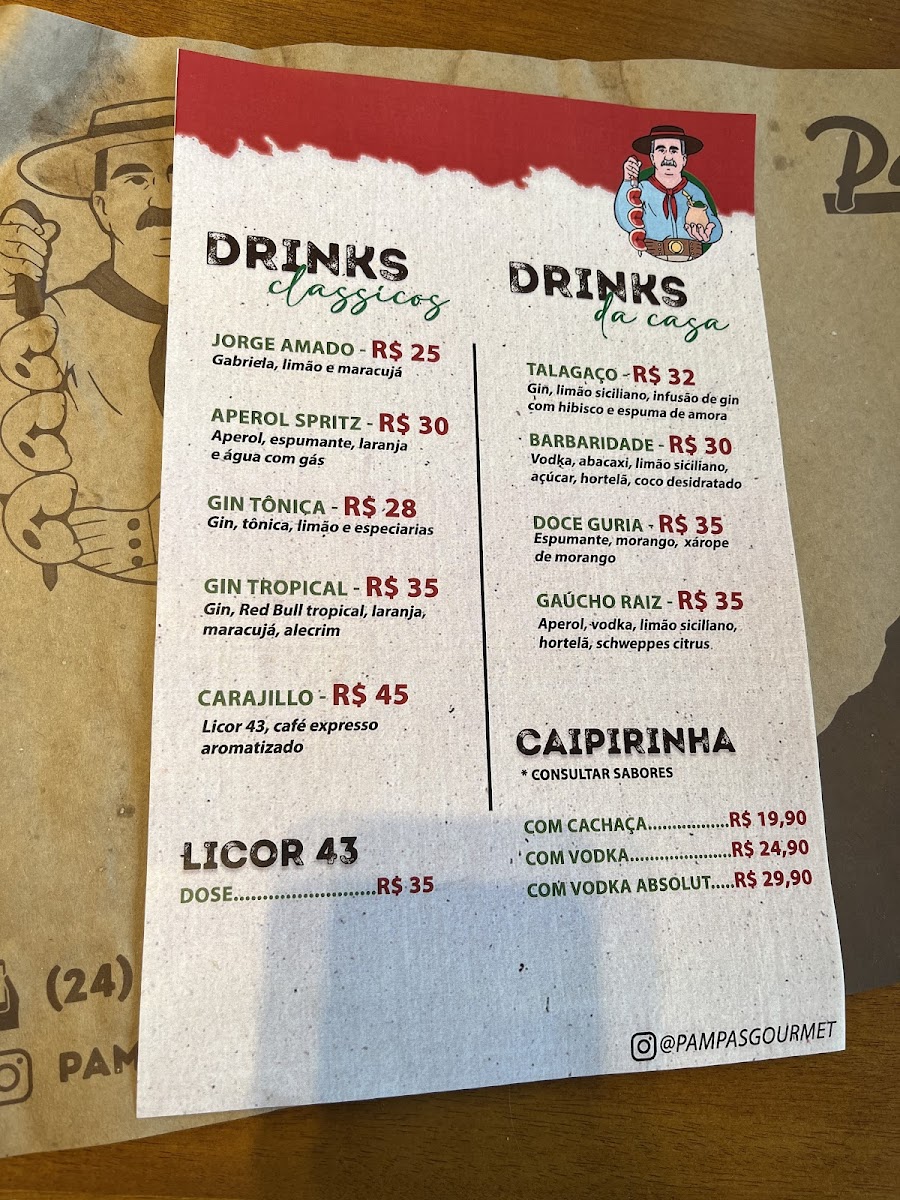 DRINKS
classicos
JORGE AMADO - R$ 25
Gabriela, limão e maracujá
APEROL SPRITZ - R$ 30
Aperol, espumante, laranja
e água com gás
GIN TÔNICA - R$ 28
Gin, tônica, limão e especiarias
GIN TROPICAL - R$ 35
Gin, Red Bull tropical, laranja,
maracujá, alecrim
CARAJILLO - R$ 45
Licor 43, café expresso
aromatizado
LICOR 43
DOSE..........................R$ 35
DRINKS
da casa
TALAGAÇO - R$ 32
Gin, limão siciliano, infusão de gin
com hibisco e espuma de amora
BARBARIDADE - R$ 30
Vodka, abacaxi, limão siciliano,
açúcar, hortelã, coco desidratado
DOCE GURIA - R$ 35
Espumante, morango, xárope
de morango
GAÚCHO RAIZ - R$ 35
Aperol, vodka, limão siciliano,
hortelã, schweppes citrus
CAIPIRINHA
* CONSULTAR SABORES
COM CACHAÇA.................R$ 19,90
COM VODKA.....................R$ 24,90
COM VODKA ABSOLUT.....R$ 29,90
@PAMPASGOURMET
(24)
PAM